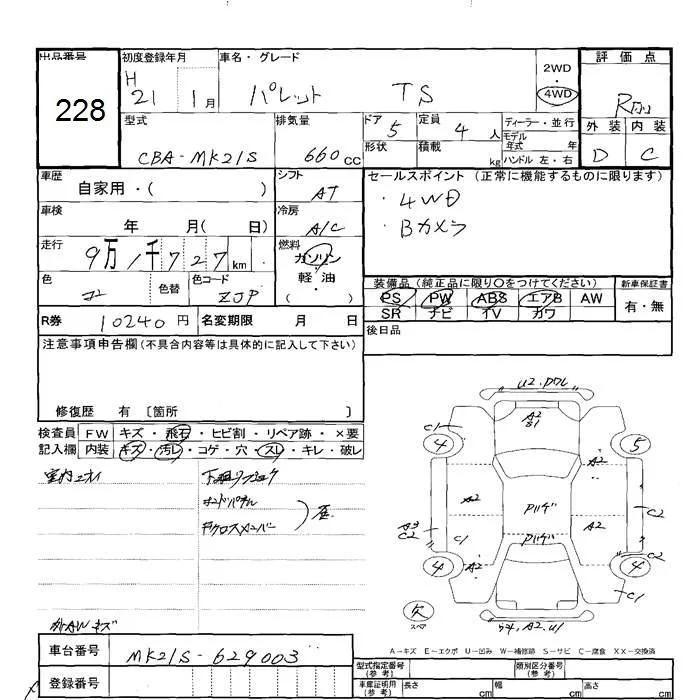 出品番号 初度登録年月 車名・グレード 評価点
228
H 21 1月 パレット TS 2WD・4WD
外装 内装
D C
型式 排気量 ドア 定員 ディーラー・並行
CBA-MK21S 660cc 5 4人 モデル年式 年
形状 積載 kg ハンドル 左・右
車歴 シフト セールスポイント (正常に機能するものに限ります)
自家用・( ) AT ・4WD
・Bカメラ
車検 冷房
年 月( 日) A/C
走行 燃料
9万1千727km ガソリン
軽・油
( )
色 色替 色コード ZJP
装備品(純正品に限り○をつけてください) 新車保証書
PS PW ABS エアB AW 有・無
SR ナビ TV カワ
R券 10240円 名変期限 月 日 後日品
注意事項申告欄(不具合内容等は具体的に記入して下さい)
修復歴 有 〔箇所 〕
検査員 FW キズ・飛石・ヒビ割・リペア跡・×要
記入欄 内装 キズ・汚レ・コゲ・穴・スレ・キレ・破レ
A2
C1
4
5
A2
A2
Pハゲ
A3
C2
C1
A2
C2
Pハゲ
C2
4
A2
4
C1
欠
スペア
外AWキズ
A−キズ E−エクボ U−凹み W−補修跡 S−サビ C−腐食 XX−交換済
車台番号 MK21S-629003
型式指定番号(参考) 類別区分番号(参考)
登録番号
車庫証明用(参考) 長さ cm 幅 cm 高さ cm